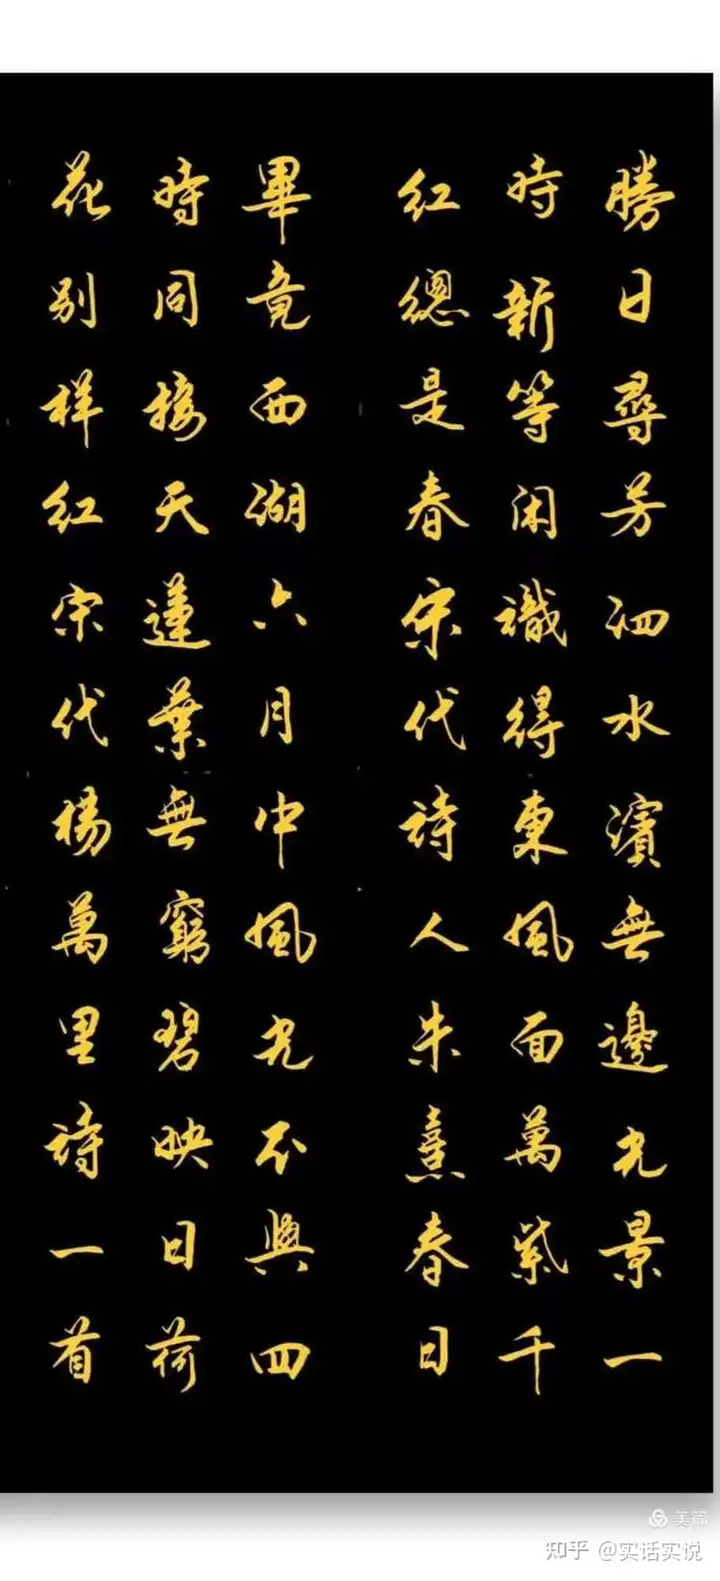 勝日尋芳泗水濱無邊光景一
時新等闲識得東風面萬紫千
红總是春宋代詩人朱熹春日
畢竟西湖六月中風光不與四
時同接天蓮葉無窮碧映日荷
花别样红宋代楊萬里詩一首
美篇
知乎 @实话实说